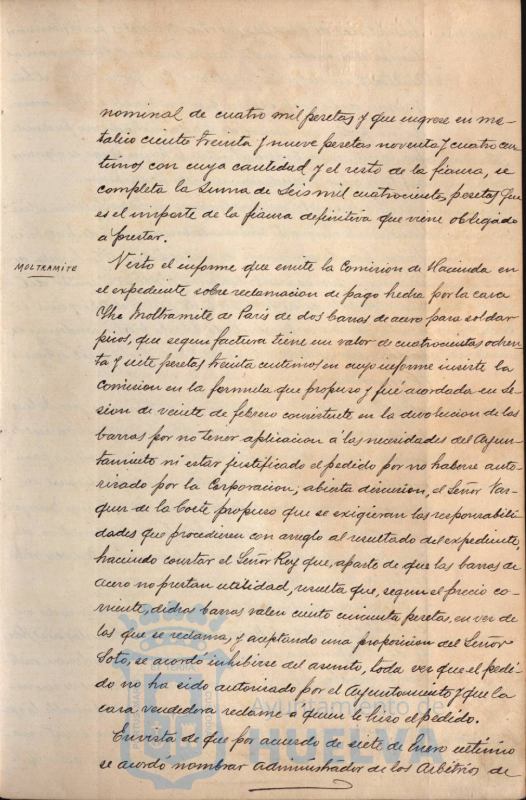 nominal de cuatro mil pesetas y que ingrese en me-
talico ciento treinta y nueve pesetas noventa y cuatro cen-
timos con cuya cantidad y el resto de la fianza, se
completa la suma de seis mil cuatrocientas pesetas que
es el importe de la fianza definitiva que viene obligado
á prestar.
MOLTRAMITE
Visto el informe que emite la Comision de Hacienda en
el expediente sobre reclamacion de pago hecha por la casa
The Moltramite de Paris de dos barras de acero para soldar
picos, que segun factura tiene un valor de cuatrocientas ochen-
ta y siete pesetas treinta centimos en cuyo informe insiste la
Comision en la formula que propuso y fué acordada en se-
sion de veinte de febrero consistente en la devolucion de las
barras por no tener aplicacion á las necesidades del Ayun-
tamiento ni estar justificado el pedido por no haberse auto-
rizado por la Corporacion; abierta discusion, el Señor Vaz-
quez de la Corte propuso que se exigieran las responsabili-
dades que procediesen con arreglo al resultado del expediente,
haciendo constar el Señor Rey que, aparte de que las barras de
acero no prestan utilidad, resulta que, segun el precio co-
rriente, dichas barras valen ciento cincuenta pesetas, en vez de
los que se reclama, y aceptando una proposicion del Señor
Soto, se acordó inhibirse del asunto, toda vez que el pedi-
do no ha sido autorizado por el Ayuntamiento y que la
casa vendedora reclame a quien le hizo el pedido.
En vista de que por acuerdo de siete de Enero ultimo
se acordó nombrar Administrador de los Arbitrios de
Ayuntamiento de
HUELVA